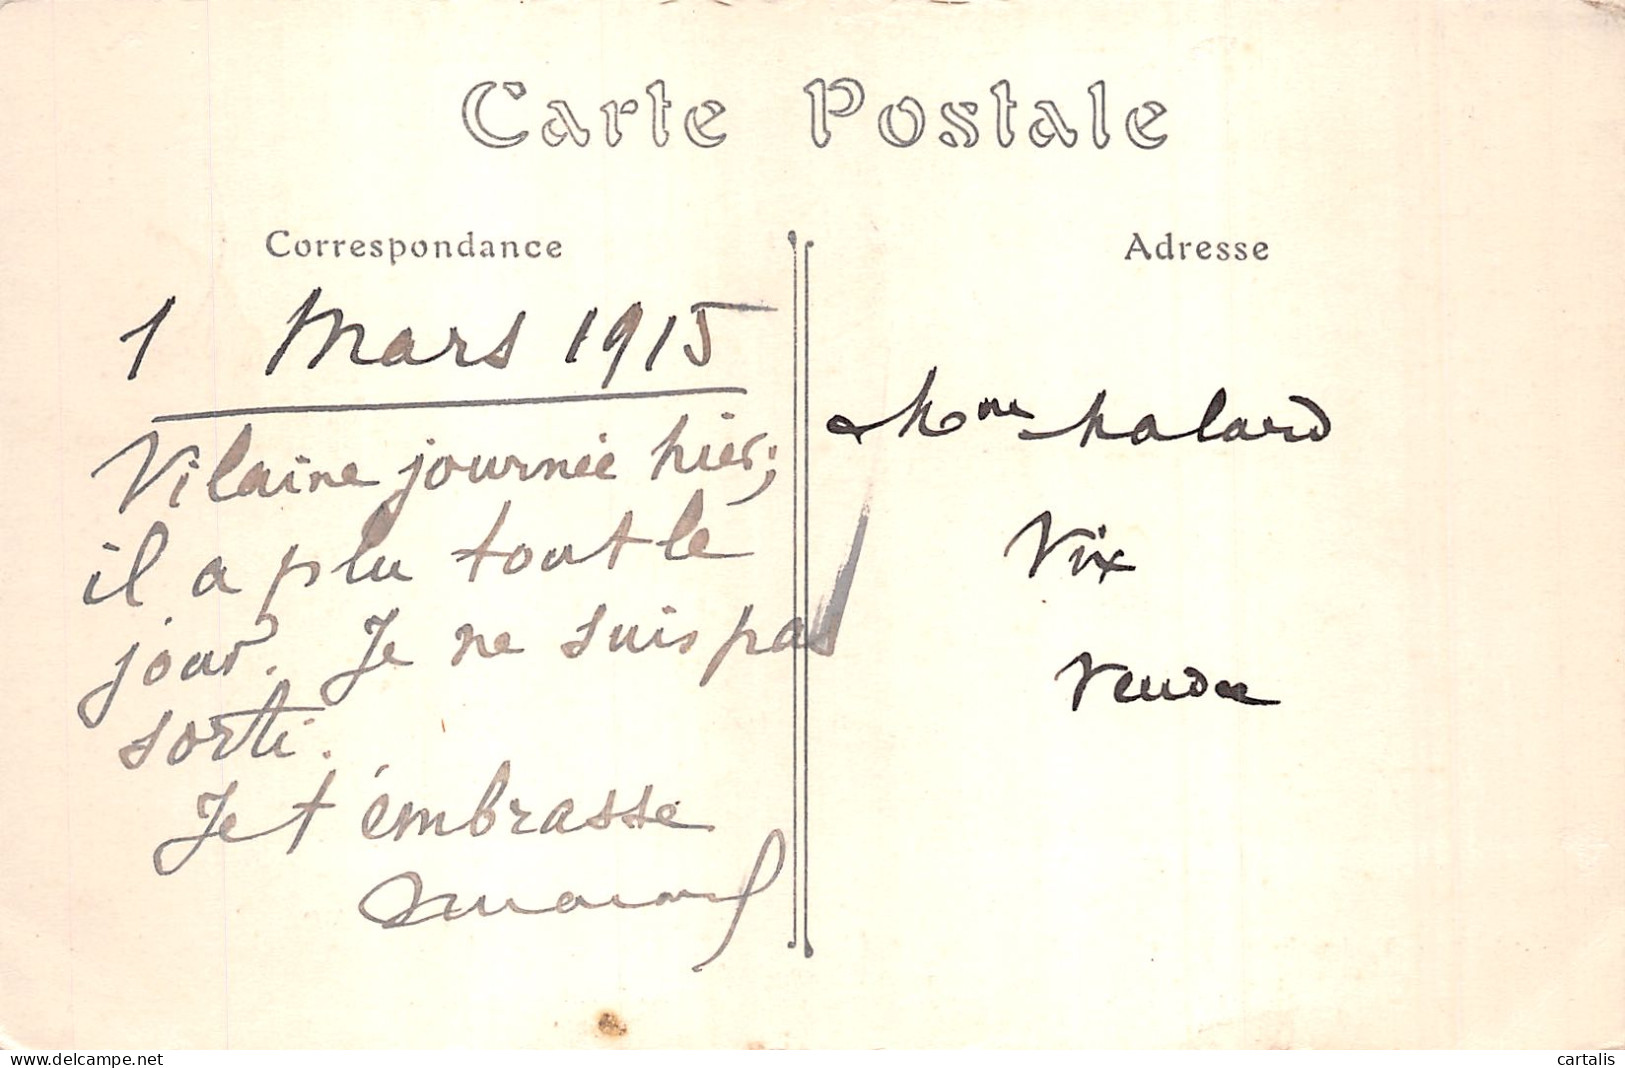 Carte Postale
Correspondance
1 Mars 1915
Vilaine journée hier;
il a plu tout le
jour. Je ne suis pas
sorti.
Je t'embrasse
Adresse
Mme Malard
Vix
Vendee
www.delcampe.net
cartalis